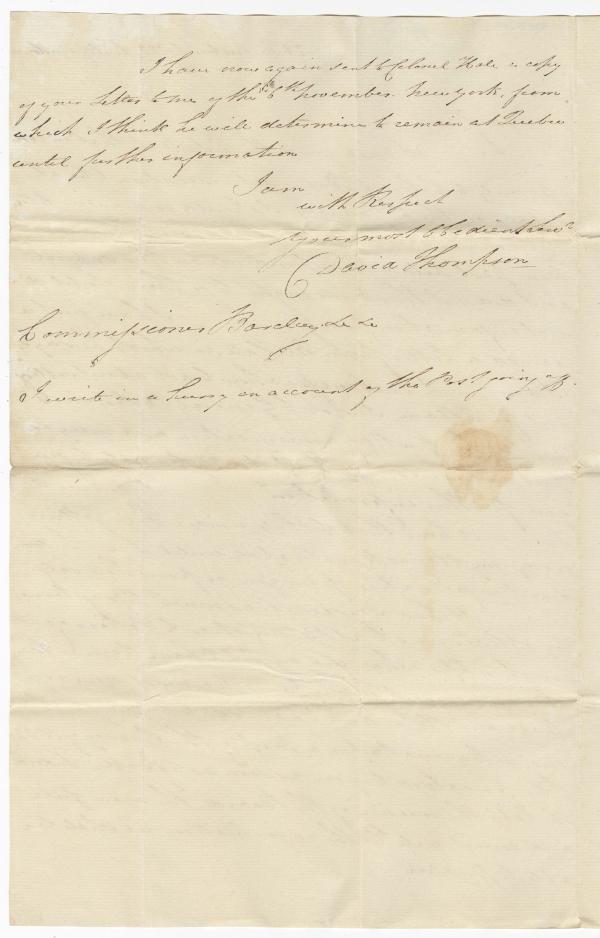 I have now again sent to Colonel Hale a copy
of your Letter to me of the 6th November New York, from
which I think he will determine to remain at Quebec
until further information
I am
with Respect
your most Obedient Servt
David Thompson
Commissioner Barclay &c &c
I write in a hurry on account of the Post going off.